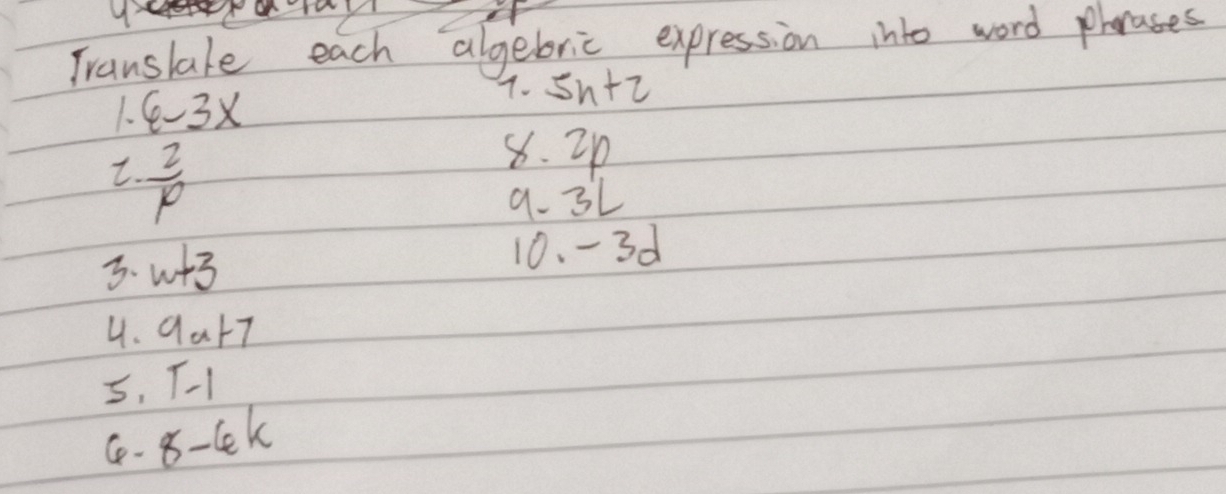 Translate each algebric expression into word phrases
1. 6-3x
7. 5n+2
2. 2/p
8. 2p
9. 3L
3. w+3
10. -3d
4. 9a+7
5. T-1
6. 8-6k